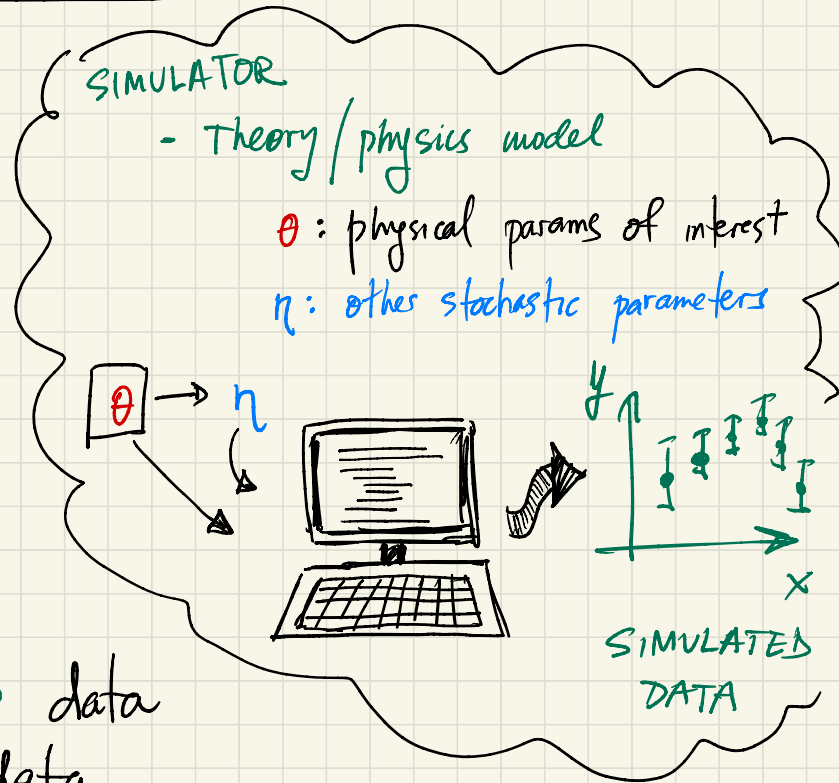 SIMULATOR
- Theory/physics model
θ: physical params of interest
η: other stochastic parameters
θ η
y
x
SIMULATED
DATA
data
data